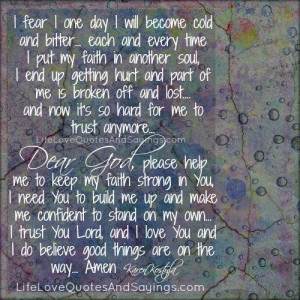 I fear I one day I will become cold
and bitter... each and every time
I put my faith in another soul,
I end up getting hurt and part of
me is broken off and lost....
and now it's so hard for me to
trust anymore...
LifeLoveQuotesAndSayings.com
Dear God, please help
me to keep my faith strong in You,
I need You to build me up and make
me confident to stand on my own...
I trust You Lord, and I love You and
I do believe good things are on the
way... Amen KarenKostyla
LifeLoveQuotesAndSayings.com